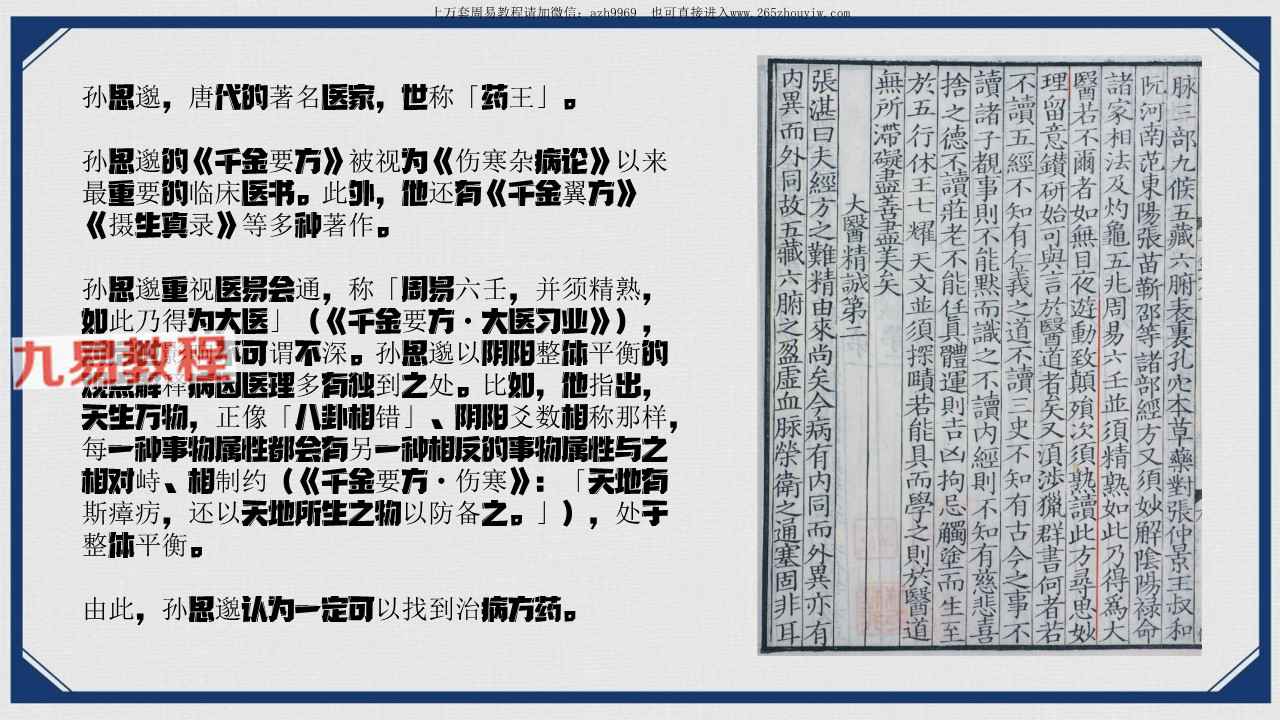 上万套周易教程请加微信：azh9969　也可直接进入www.265zhouyiw.com
孙思邈，唐代的著名医家，世称「药王」。
孙思邈的《千金要方》被视为《伤寒杂病论》以来
最重要的临床医书。此外，他还有《千金翼方》
《摄生真录》等多种著作。
孙思邈重视医易会通，称「周易六壬，并须精熟，
如此乃得为大医」（《千金要方·大医习业》），
不可谓不深。孙思邈以阴阳整体平衡的
观点解释病因医理多有独到之处。比如，他指出，
天生万物，正像「八卦相错」、阴阳爻数相称那样，
每一种事物属性都会有另一种相反的事物属性与之
相对峙、相制约（《千金要方·伤寒》：「天地有
斯瘴疠，还以天地所生之物以防备之。」），处于
整体平衡。
由此，孙思邈认为一定可以找到治病方药。
九易教程
脉三部九候五藏六腑表裏孔穴本草藥對張仲景王叔和
阮河南范東陽張苗靳邵等諸部經方又須妙解陰陽祿命
諸家相法及灼龜五兆周易六壬並須精熟如此乃得為大
醫若不爾者如無目夜遊動致顛殞次須熟讀此方尋思妙
理留意鑚研始可與言於醫道者矣又湏涉獵群書何者若
不讀五經不知有仁義之道不讀三史不知有古今之事不
讀諸子覩事則不能黙而識之不讀内經則不知有慈悲喜
捨之德不讀莊老不能任真體運則吉凶拘忌觸塗而生至
於五行休王七耀天文並須探賾若能具而學之則於醫道
無所滯礙盡善盡美矣
大醫精誠第二
張湛曰夫經方之難精由來尚矣今病有内同而外異亦有
内異而外同故五藏六腑之盈虛血脉榮衛之通塞固非耳